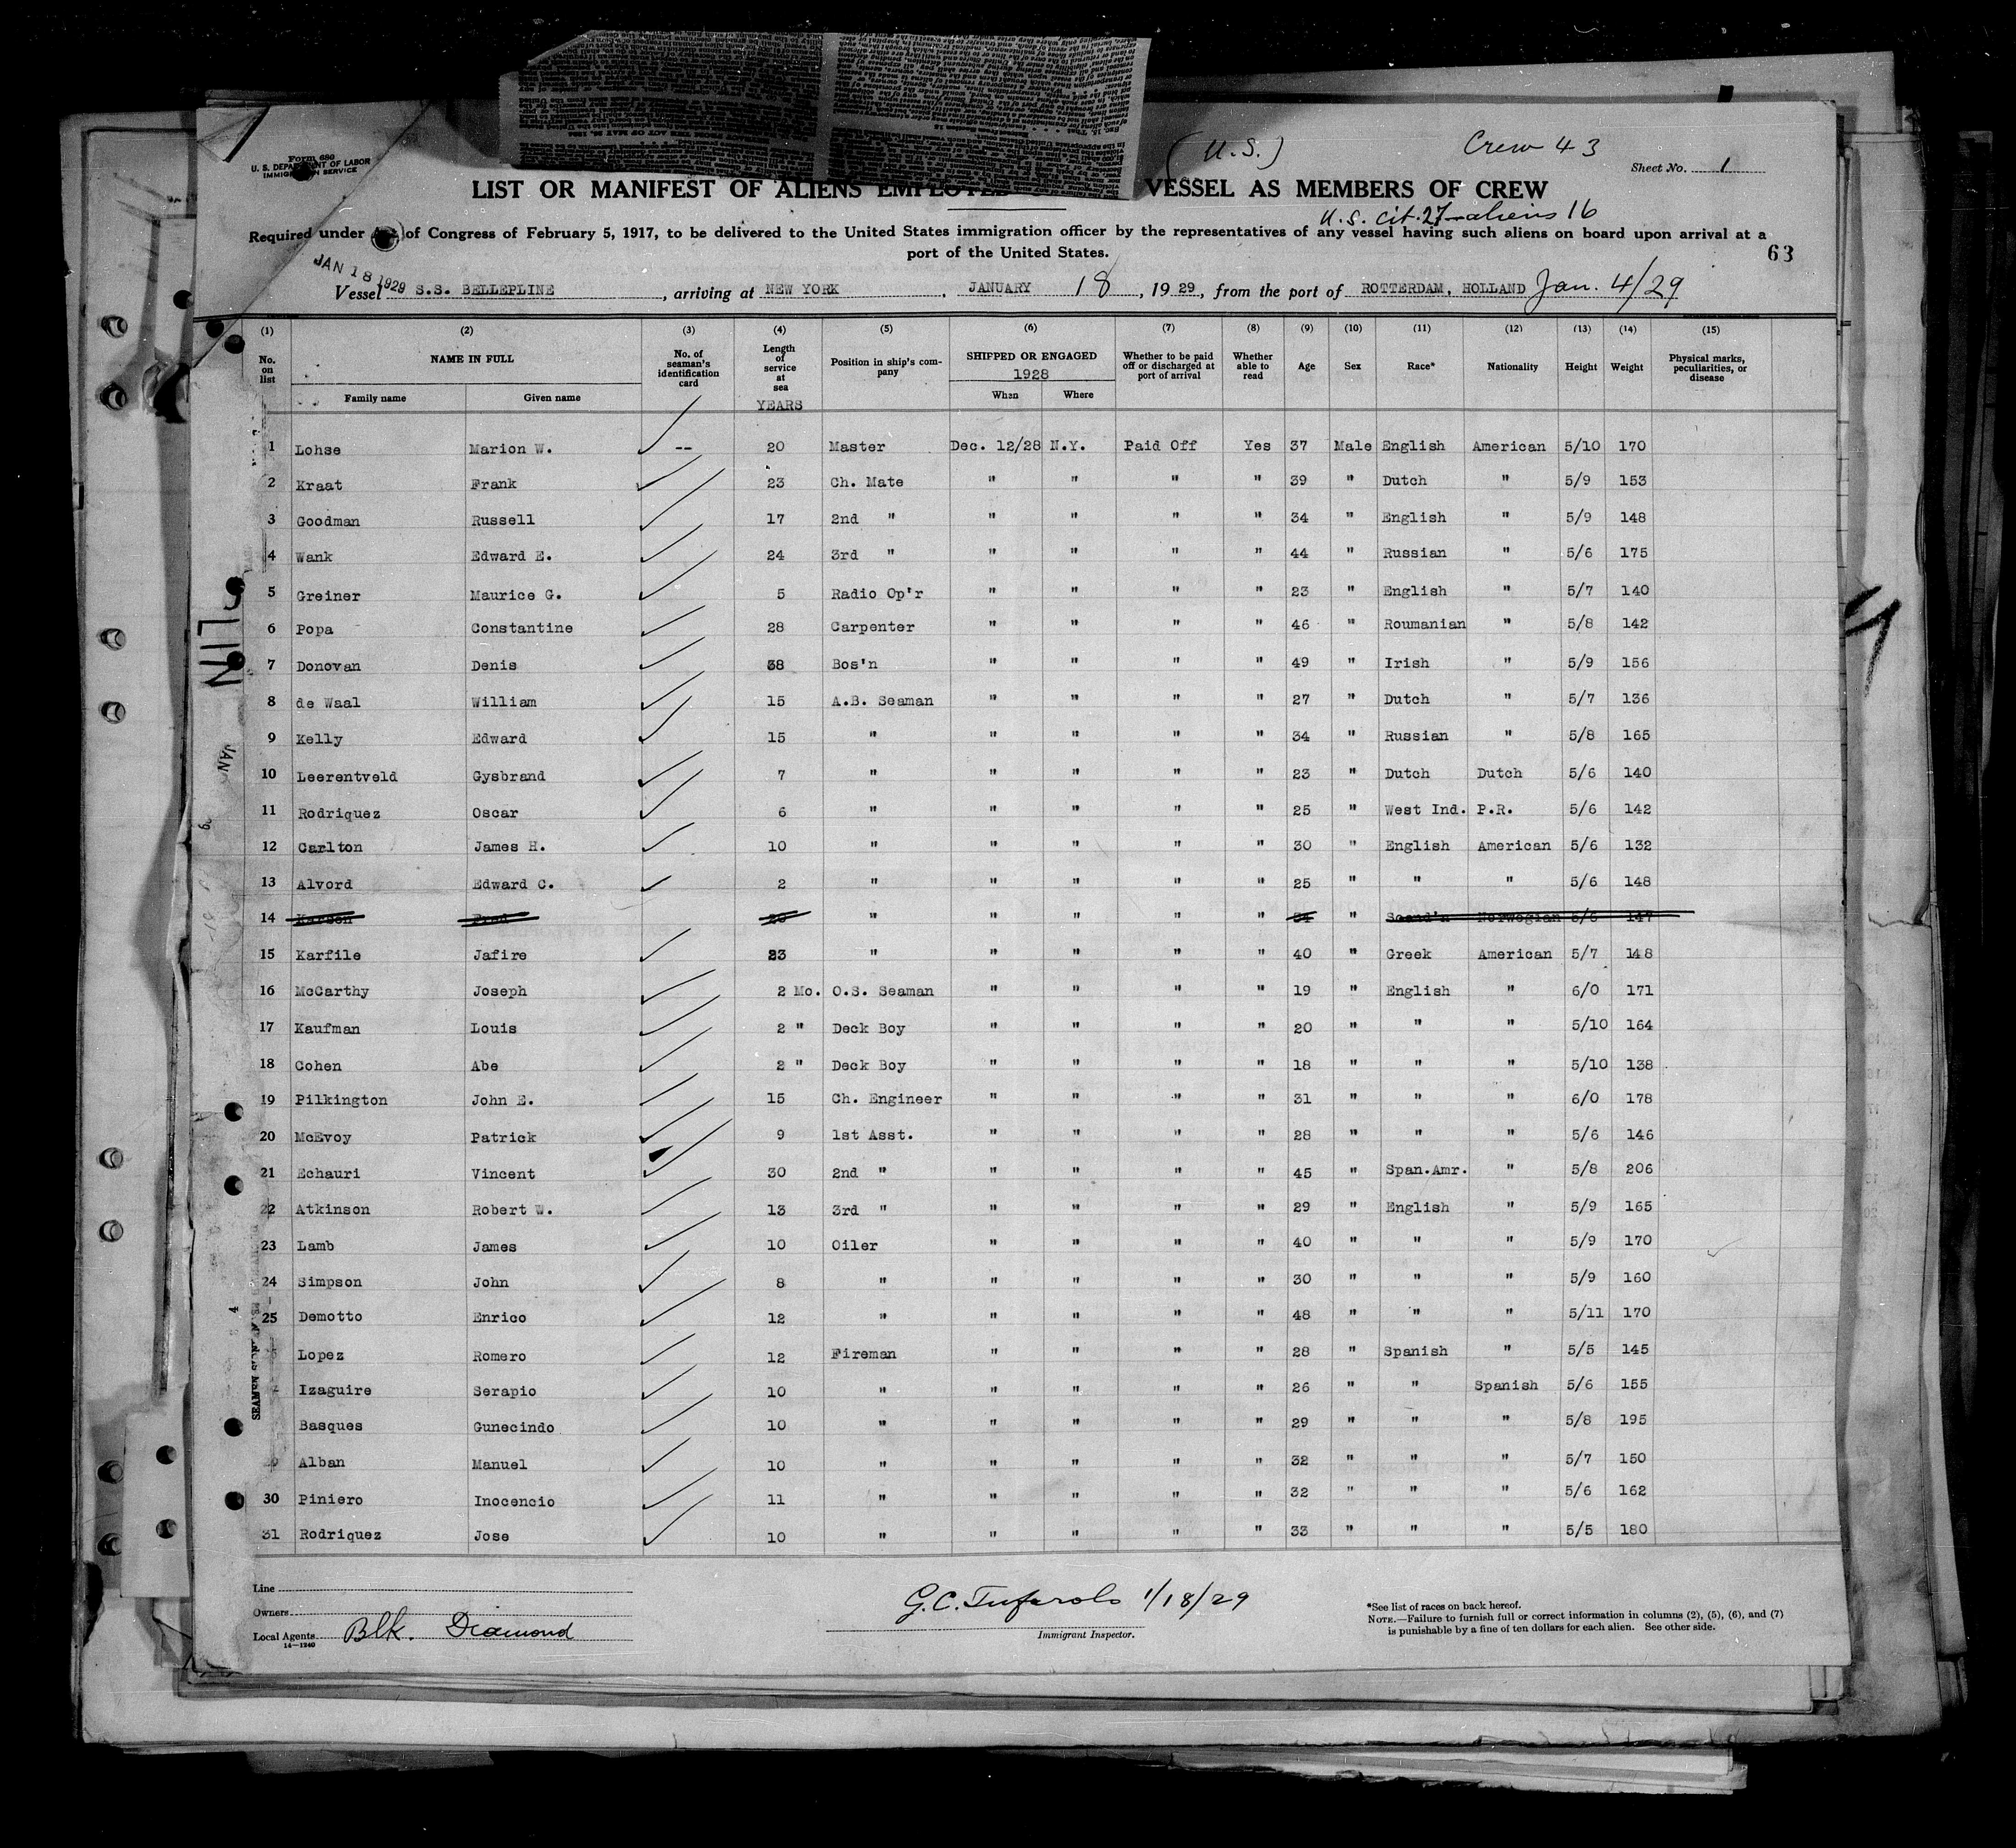 Form 680
U. S. DEPARTMENT OF LABOR
IMMIGRATION SERVICE
(U.S.)
Crew 43
Sheet No. 1
LIST OR MANIFEST OF ALIENS EMPLOYED VESSEL AS MEMBERS OF CREW
U.S. cit. 27 - aliens 16
Required under of Congress of February 5, 1917, to be delivered to the United States immigration officer by the representatives of any vessel having such aliens on board upon arrival at a
port of the United States.
63
JAN 18 1929
Vessel S.S. BELLEPLINE, arriving at NEW YORK, JANUARY 18, 1929, from the port of ROTTERDAM, HOLLAND Jan. 4/29
(1) (2) (3) (4) (5) (6) (7) (8) (9) (10) (11) (12) (13) (14) (15)
No. on list NAME IN FULL Family name Given name No. of seaman's identification card Length of service at sea YEARS Position in ship's company SHIPPED OR ENGAGED 1928 When Where Whether to be paid off or discharged at port of arrival Whether able to read Age Sex Race* Nationality Height Weight Physical marks, peculiarities, or disease
1 Lohse Marion W. -- 20 Master Dec. 12/28 N.Y. Paid Off Yes 37 Male English American 5/10 170
2 Kraat Frank 23 Ch. Mate " " " " 39 " Dutch " 5/9 153
3 Goodman Russell 17 2nd " " " " " 34 " English " 5/9 148
4 Wank Edward E. 24 3rd " " " " " 44 " Russian " 5/6 175
5 Greiner Maurice G. 5 Radio Op'r " " " " 23 " English " 5/7 140
6 Popa Constantine 28 Carpenter " " " " 46 " Roumanian " 5/8 142
7 Donovan Denis 38 Bos'n " " " " 49 " Irish " 5/9 156
8 de Waal William 15 A.B. Seaman " " " " 27 " Dutch " 5/7 136
9 Kelly Edward 15 " " " " " 34 " Russian " 5/8 165
10 Leerentveld Gysbrand 7 " " " " " 23 " Dutch Dutch 5/6 140
11 Rodriquez Oscar 6 " " " " " 25 " West Ind. P.R. 5/6 142
12 Carlton James H. 10 " " " " " 30 " English American 5/6 132
13 Alvord Edward C. 2 " " " " " 25 " " " 5/6 148
14 Karson Fred 20 " " " " " 34 " Scand'n Norwegian 5/6 147
15 Karfile Jafire 23 " " " " " 40 " Greek American 5/7 148
16 McCarthy Joseph 2 Mo. O.S. Seaman " " " " 19 " English " 6/0 171
17 Kaufman Louis 2 " Deck Boy " " " " 20 " " " 5/10 164
18 Cohen Abe 2 " Deck Boy " " " " 18 " " " 5/10 138
19 Pilkington John E. 15 Ch. Engineer " " " " 31 " " " 6/0 178
20 McEvoy Patrick 9 1st Asst. " " " " 28 " " " 5/6 146
21 Echauri Vincent 30 2nd " " " " " 45 " Span.Amr. " 5/8 206
22 Atkinson Robert W. 13 3rd " " " " " 29 " English " 5/9 165
23 Lamb James 10 Oiler " " " " 40 " " " 5/9 170
24 Simpson John 8 " " " " " 30 " " " 5/9 160
25 Demotto Enrico 12 " " " " " 48 " " " 5/11 170
Lopez Romero 12 Fireman " " " " 28 " Spanish " 5/5 145
Izaguire Serapio 10 " " " " " 26 " " Spanish 5/6 155
Basques Gunecindo 10 " " " " " 29 " " " 5/8 195
Alban Manuel 10 " " " " " 32 " " " 5/7 150
30 Piniero Inocencio 11 " " " " " 32 " " " 5/6 162
31 Rodriquez Jose 10 " " " " " 33 " " " 5/5 180
Line
Owners
Local Agents Blk. Diamond
14—1240
1/18/29
Immigrant Inspector.
*See list of races on back hereof.
NOTE.—Failure to furnish full or correct information in columns (2), (5), (6), and (7)
is punishable by a fine of ten dollars for each alien. See other side.